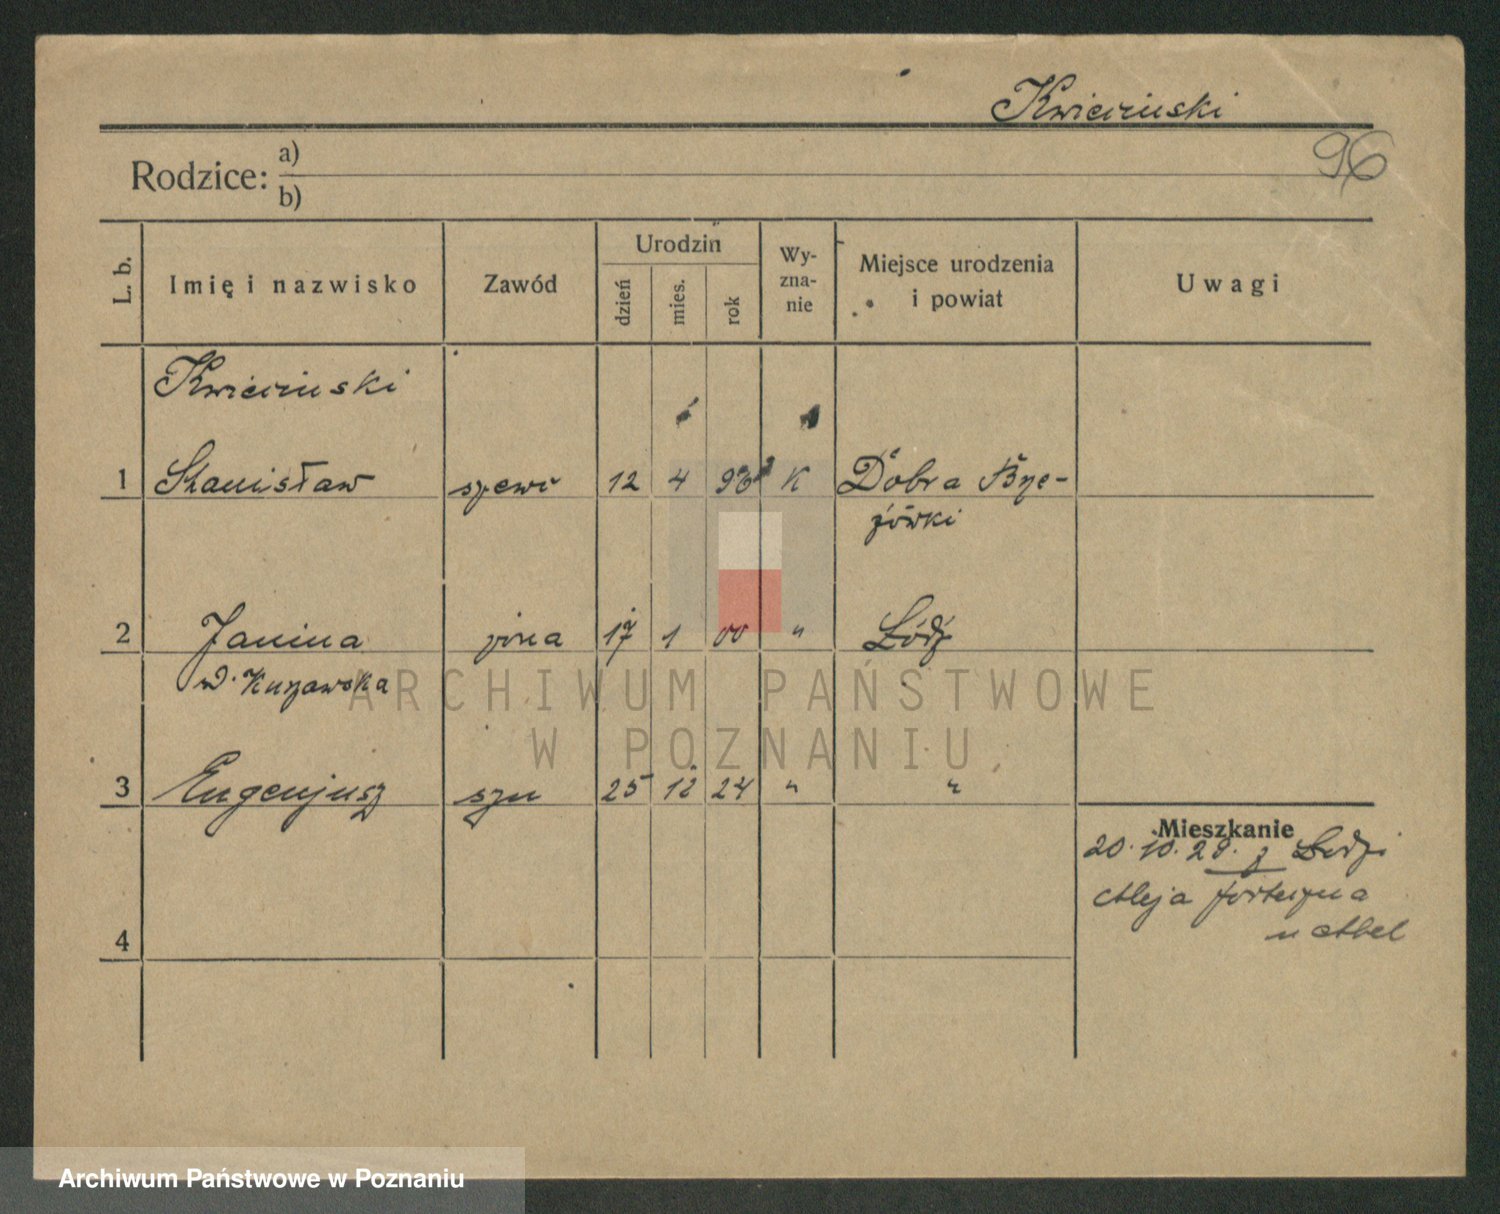 Kwieciński
96
Rodzice: a)
b)
L. b.
Imię i nazwisko
Zawód
Urodzin
dzień
mies.
rok
Wy-
zna-
nie
Miejsce urodzenia
i powiat
Uwagi
Kwieciński
1 Stanisław szewc 12 4 96 K Dobra Brze-
zówki
2 Janina żona 17 1 00 " Łódź
d. Kujawska
3 Eugenjusz syn 25 12 24 " "
Mieszkanie
20.10.28. z Łodzi
4
ARCHIWUM PAŃSTWOWE
W POZNANIU
Archiwum Państwowe w Poznaniu